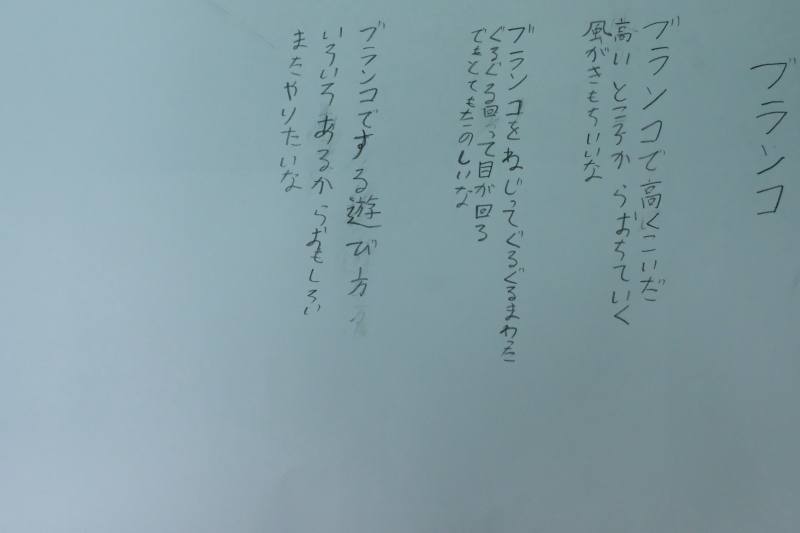 ブランコ
ブランコで高くこいだ
高いところからおちていく
風がきもちいいな
ブランコをねじってぐるぐるまわった
ぐるぐる回って目が回る
でもとてもたのしいな
ブランコでする遊び方
いろいろあるからおもしろい
またやりたいな